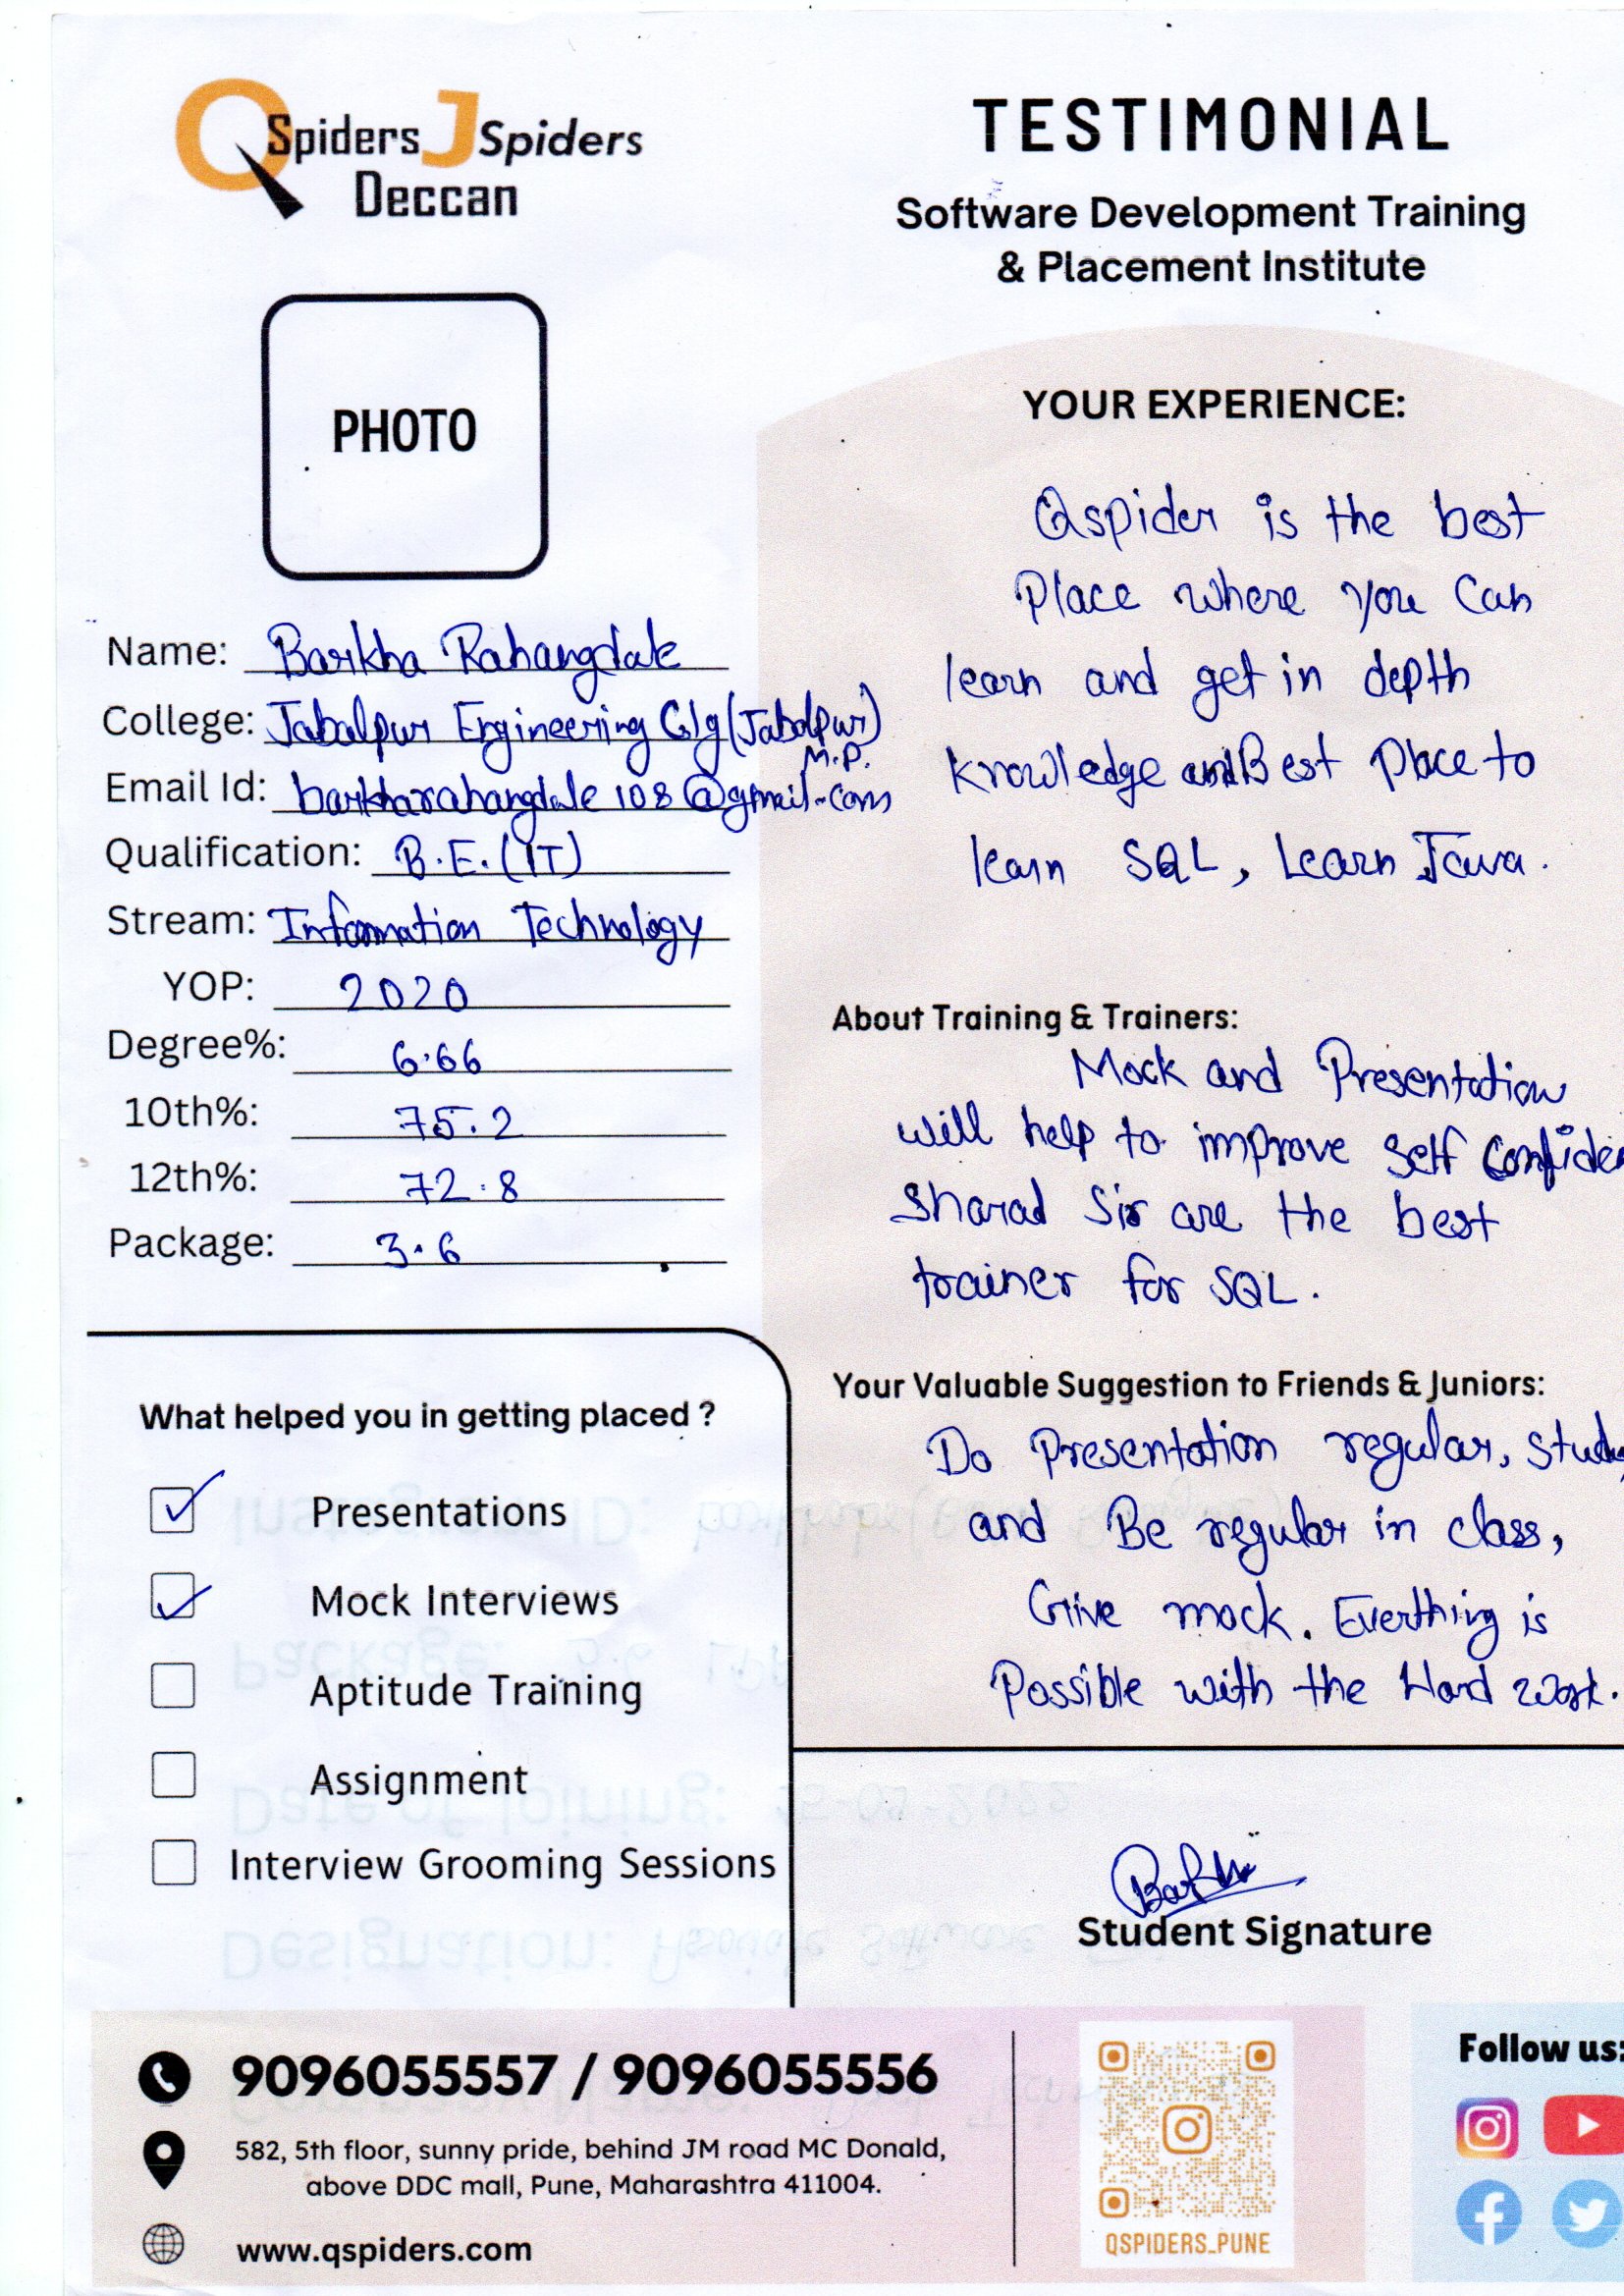 QSpiders JSpiders
Deccan
TESTIMONIAL
Software Development Training
& Placement Institute
PHOTO
Name: Barkha Rahangdale
College: Jabalpur Engineering Clg (Jabalpur)
M.P.
Email Id: barkharahangdale108@gmail.com
Qualification: B.E.(IT)
Stream: Information Technology
YOP: 2020
Degree%: 6.66
10th%: 75.2
12th%: 72.8
Package: 3.6
What helped you in getting placed ?
Presentations
Mock Interviews
Aptitude Training
Assignment
Interview Grooming Sessions
YOUR EXPERIENCE:
Qspider is the best
Place where you Can
learn and get in depth
knowledge and Best Place to
learn SQL, Learn Java.
About Training & Trainers:
Mock and Presentation
will help to improve Self Confiden
Sharad Sir are the best
trainer for SQL.
Your Valuable Suggestion to Friends & Juniors:
Do Presentation regular, Study
and Be regular in class,
Give mock. Everthing is
Possible with the Hard work.
Student Signature
9096055557 / 9096055556
582, 5th floor, sunny pride, behind JM road MC Donald,
above DDC mall, Pune, Maharashtra 411004.
www.qspiders.com
QSPIDERS_PUNE
Follow us: